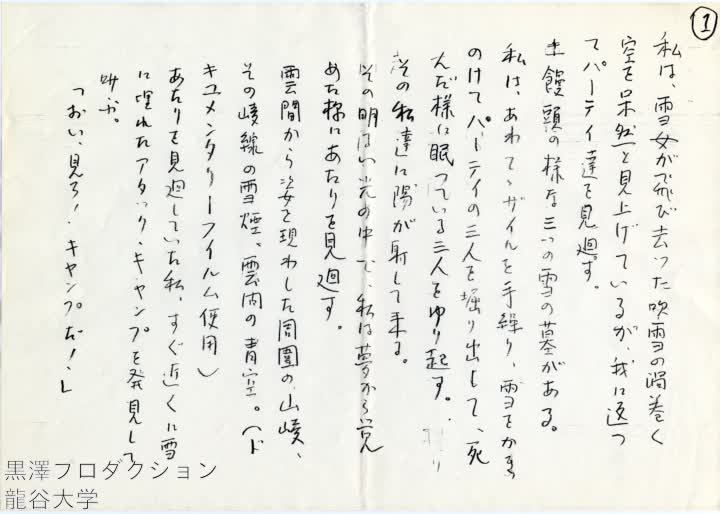 ①
私は、雪女が飛び去った吹雪の渦巻く
空を呆然と見上げているが、我に返っ
てパーティ達を見廻す。
土饅頭の様な三つの雪の墓がある。
私は、あわてゝザイルを手繰り、雪をかき
のけてパーティの三人を掘り出して、死
んだ様に眠っている三人をゆり起す。
その私達に陽が射して来る。
その明るい光の中で、私は夢から覚
めた様にあたりを見廻す。
雲間から姿を現わした周囲の山嶺、
その嶺線の雪煙、雲間の青空。（ド
キュメンタリーフイルム使用）
あたりを見廻していた私、すぐ近くに雪
に埋れたアタック・キャンプを発見して
叫ぶ。
「おい、見ろ！キャンプだ！」
黒澤プロダクション
龍谷大学